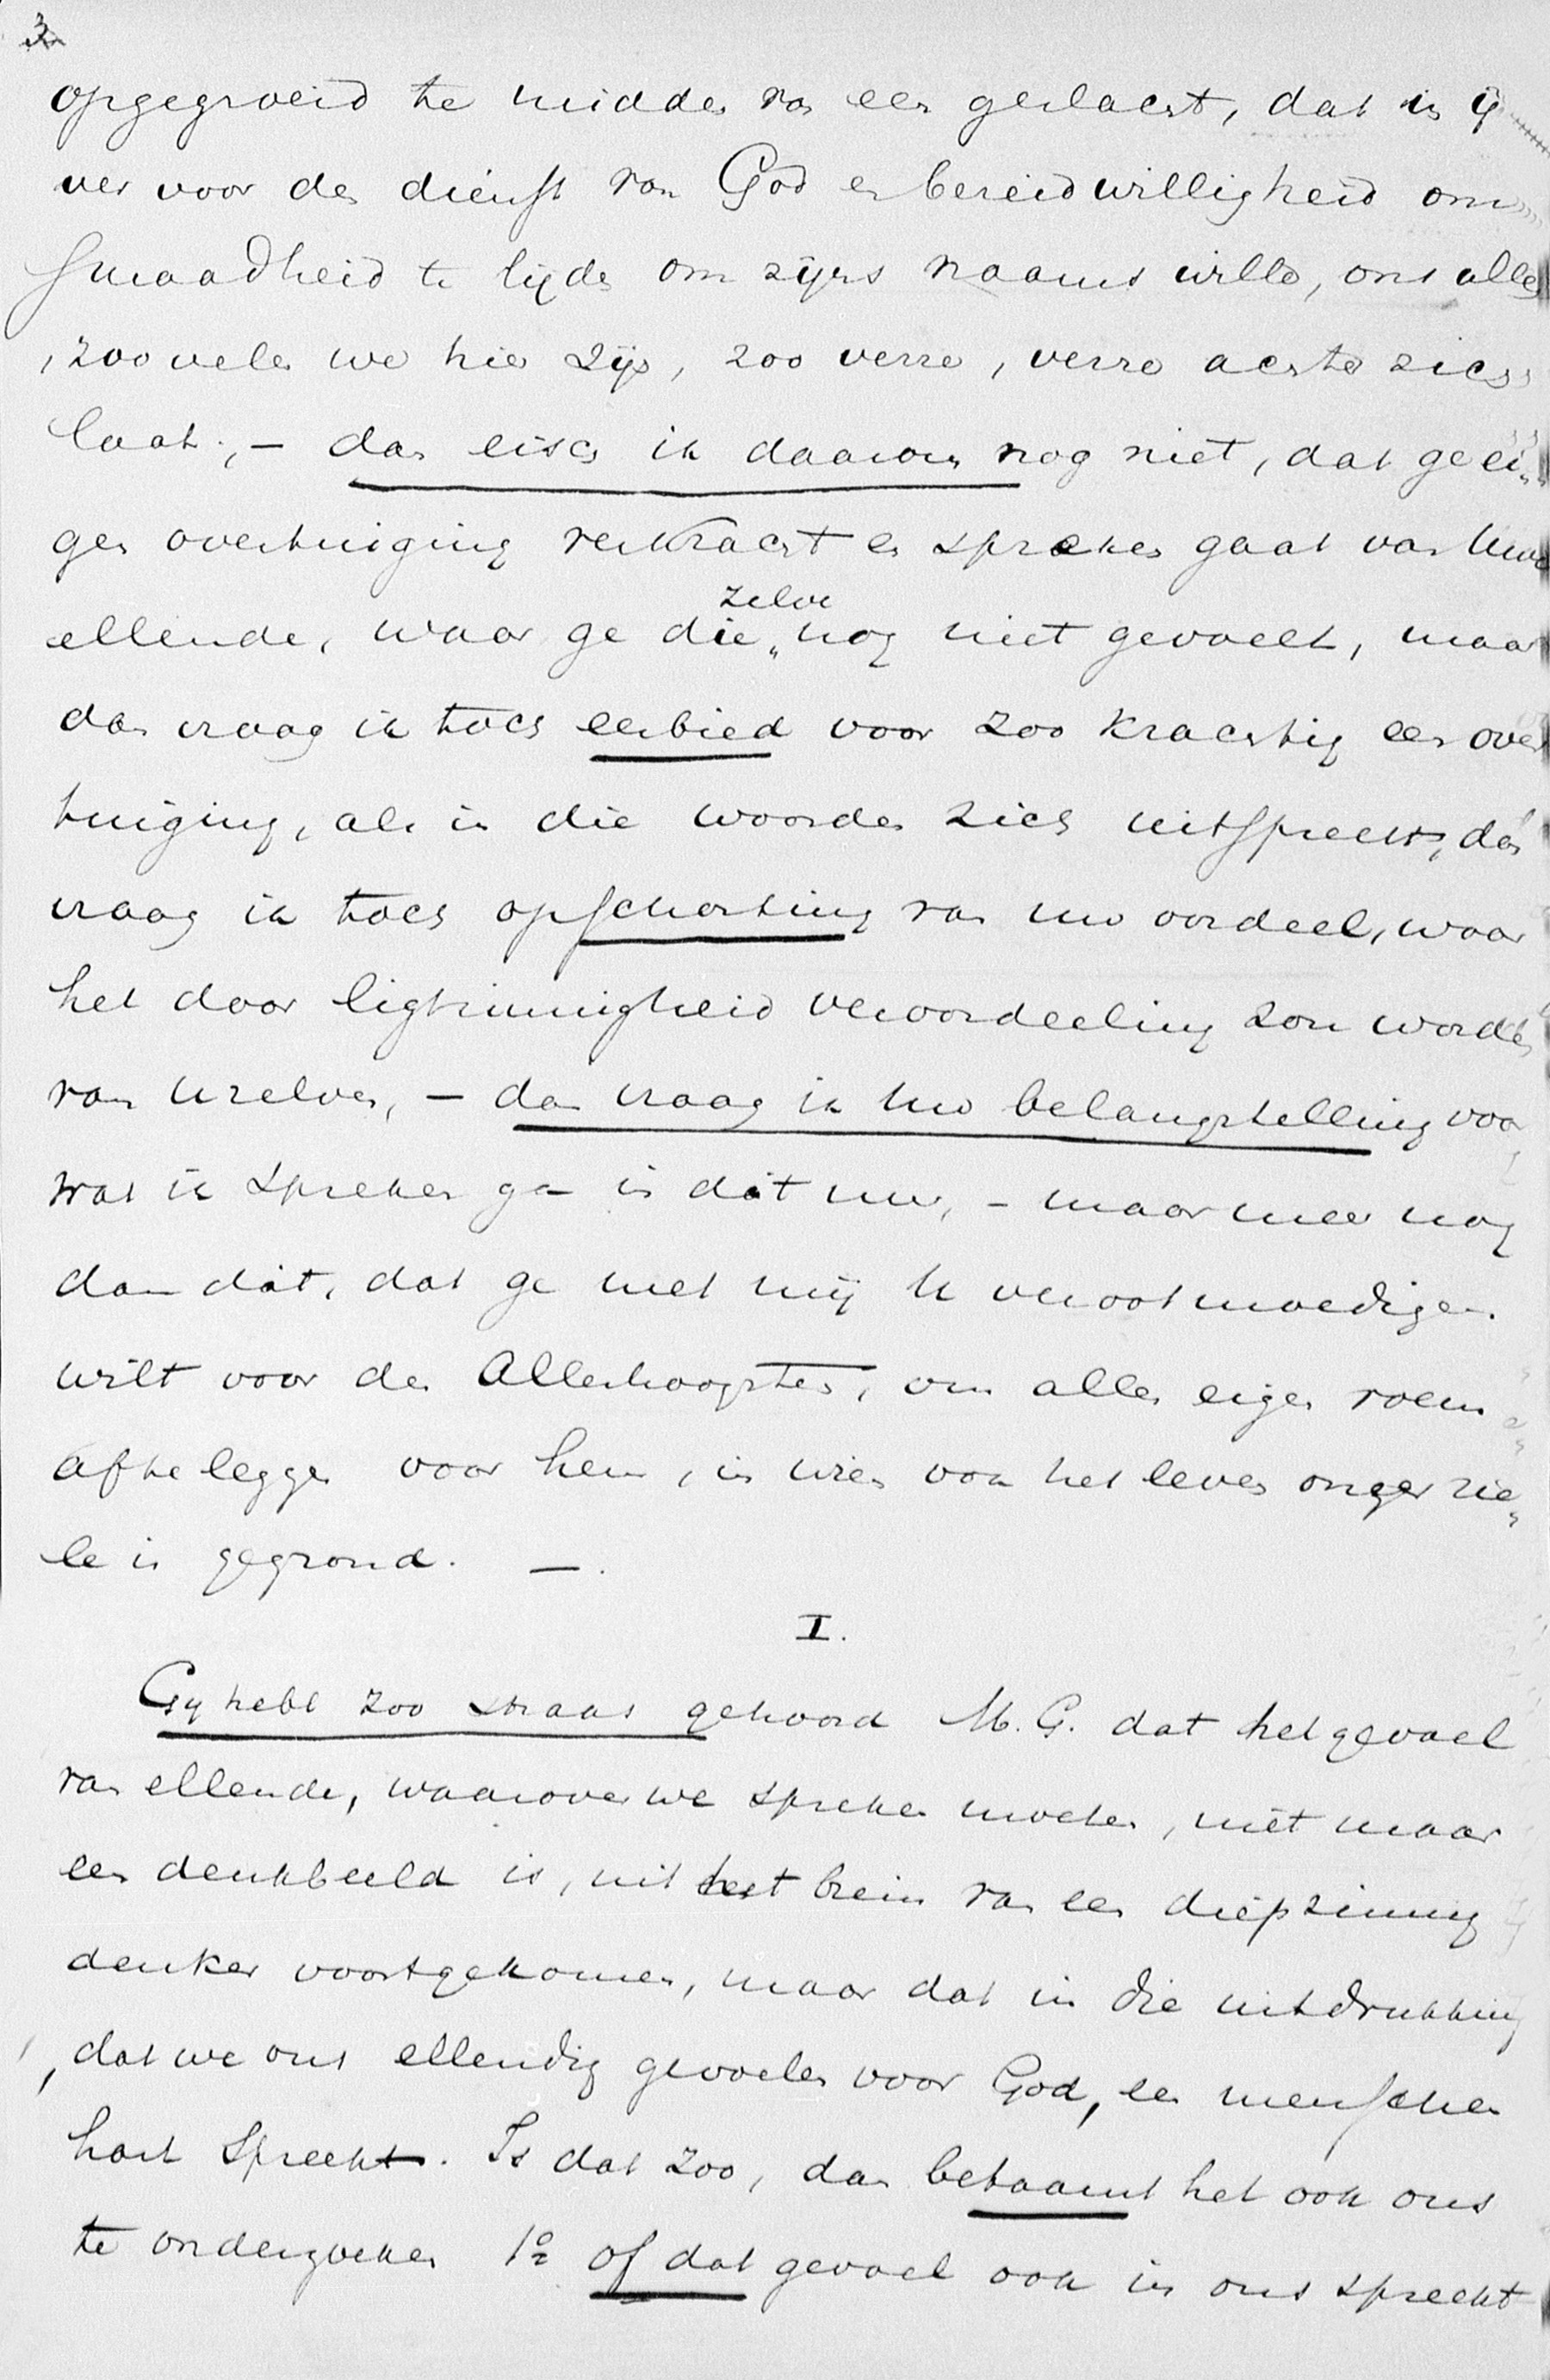 3
opgegroeid te midden van een geslacht, dat in ij
ver voor den dienst van God en bereidwilligheid om
smaadheid te lijden om zijns naams wille, ons allen
, zoo velen we hier zijn, zoo verre, verre achter zich
laat, – dan eisch ik daarom nog niet, dat ge ei„
gen overtuiging verkracht en spreken gaat van Uwe
zelve
ellende, waar ge die „ nog niet gevoelt, maar
dan vraag ik toch eerbied voor zoo krachtig een over
tuiging, als in die woorden zich uitspreekt, dán
vraag ik toch opschorting van uw oordeel, waar
het door ligtzinnigheid veroordeeling zou worden
van Uzelven, – dan vraag ik Uw belangstelling voor
wat ik spreken ga in dit uur, – maar meer nog
dan dát, dat ge met mij U verootmoedigen
wilt voor den Allerhoogsten, om allen eigen roem
afteleggen voor hem, in wien ook het leven onzer zie„
le is gegrond. –.
I.
Gij hebt zoo straks gehoord M. G. dat het gevoel
van ellende, waarover we spreken moeten, niet maar
een denkbeeld is, uit het brein van een diepzinnig
denker voortgekomen, maar dat in die uitdrukking
, dat we ons ellendig gevoelen voor God, een menschen
hart spreekt. Is dat zoo, dan betaamt het ook ons
te onderzoeken 1º of dat gevoel ook in ons spreekt